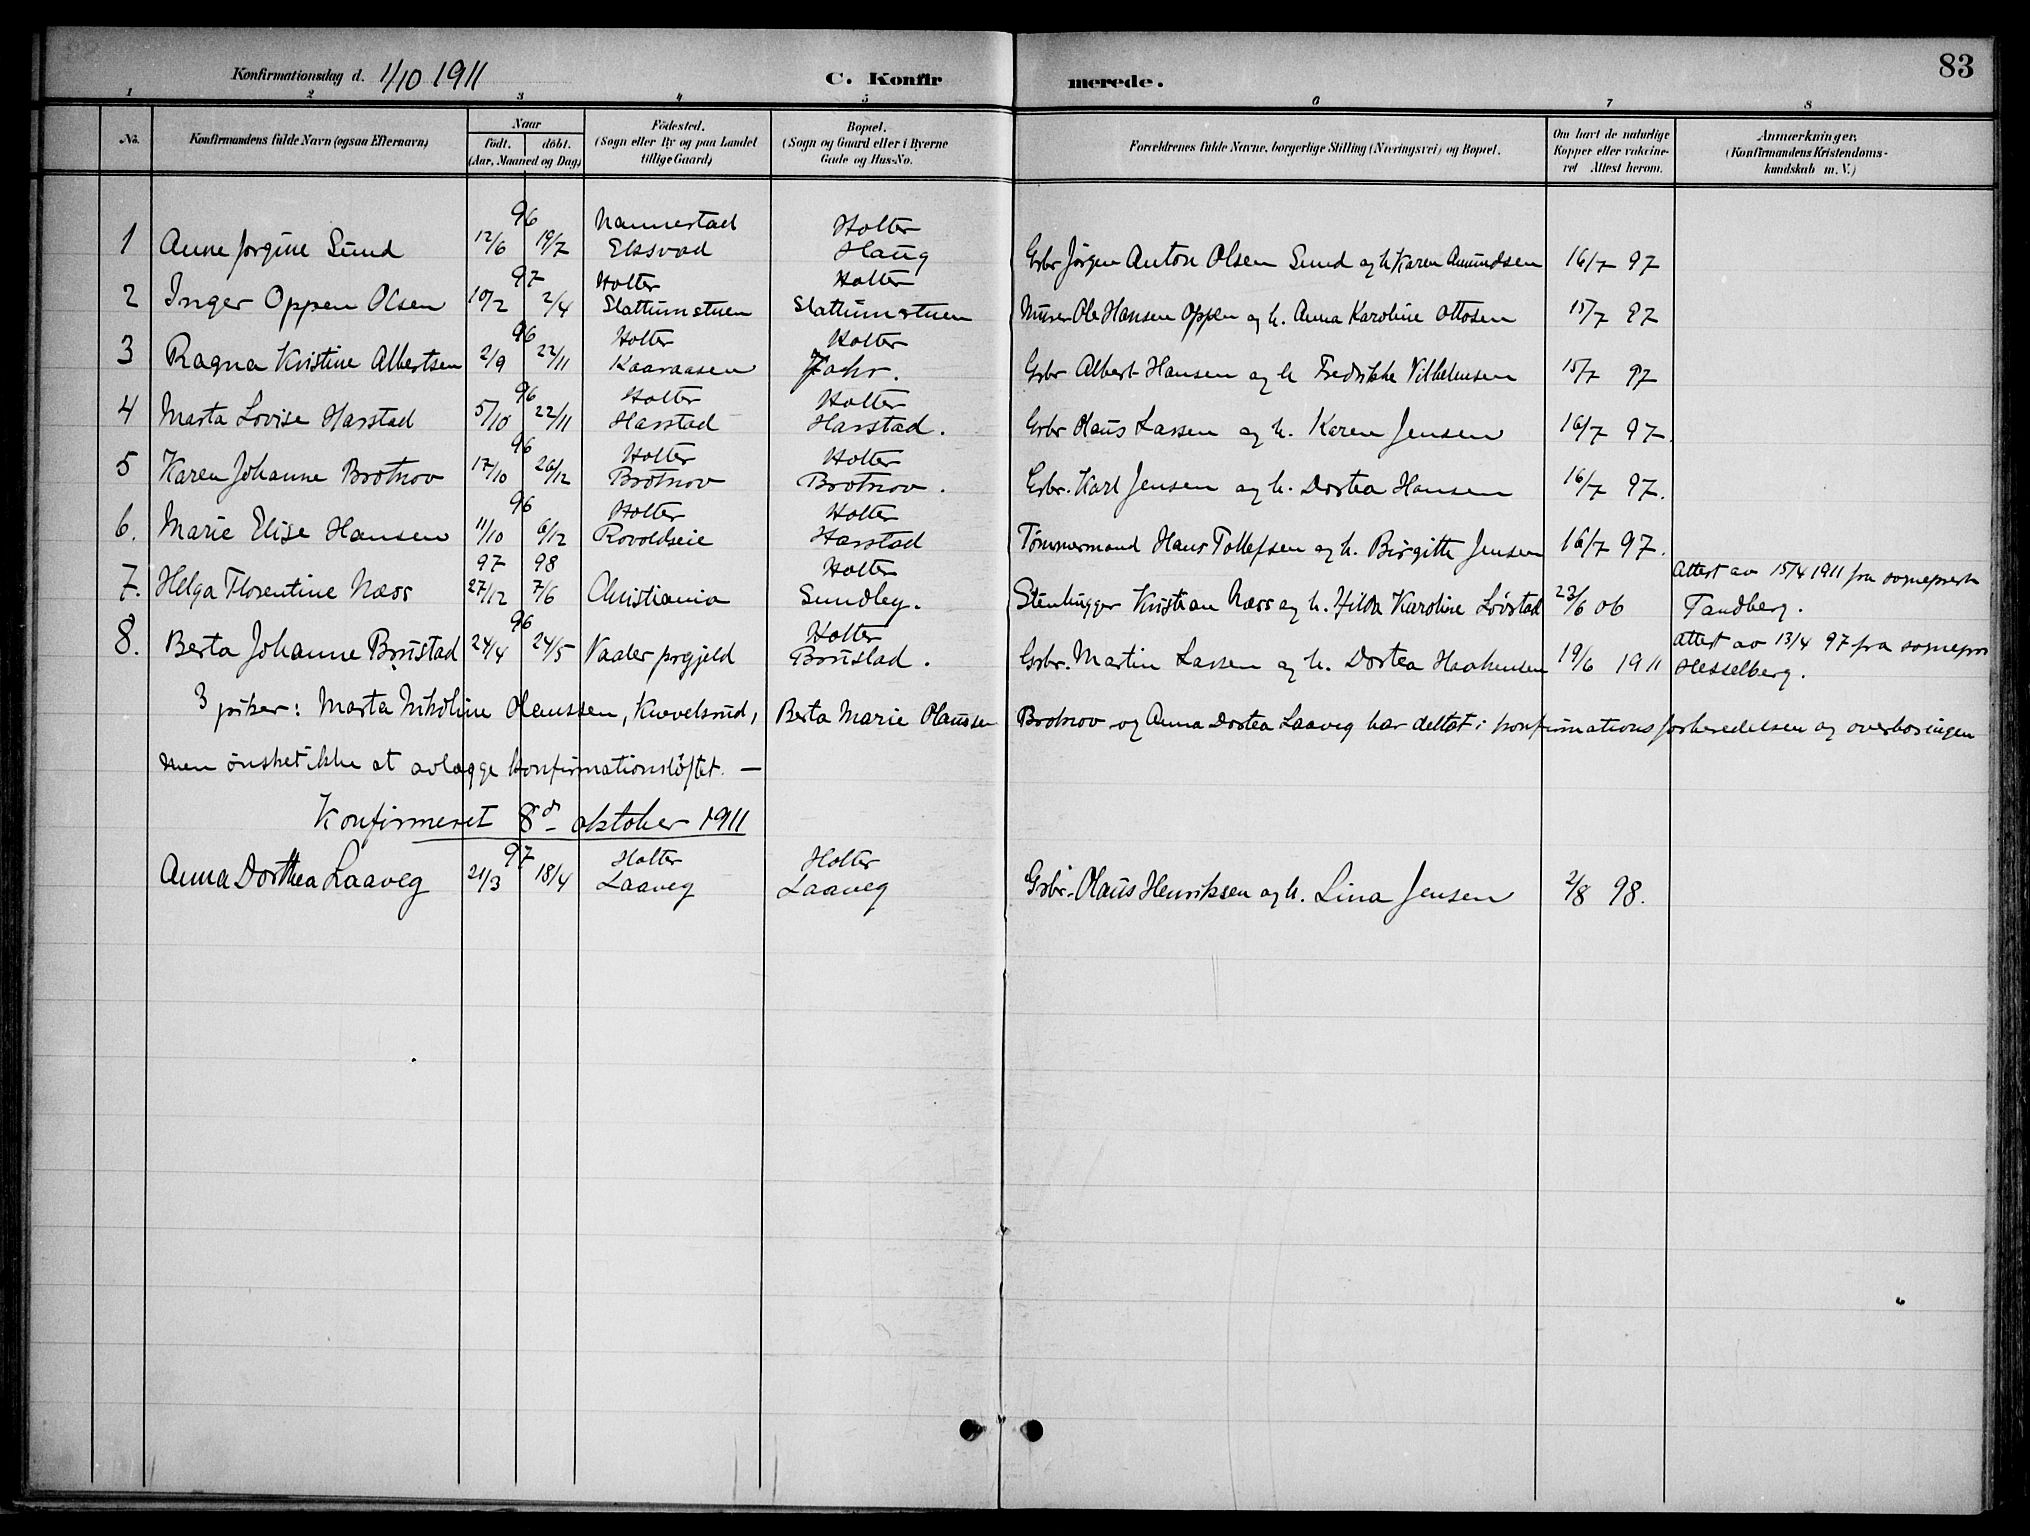 83
Konfirmationsdag d. 1/10 1911 C. Konfirmerede.
1 2 3 4 5 6 7 8
No. Konfirmandens fulde Navn (ogsaa Efternavn) Naar født. døbt. (Aar, Maaned og Dag) Fødested. (Sogn eller By og paa Landet tillige Gaard) Bopæl. (Sogn og Gaard eller i Byerne Gade og Hus-No. Forældrenes fulde Navne, borgerlige Stilling (Næringsvei) og Bopæl. Om havt de naturlige Kopper eller vakcineret Attest herom. Anmærkninger. (Konfirmandens Kristendomskundskab m. V.)
96 Nannestad Holter
1 Anne Jørgine Sund 12/6 19/7 Elsvad Haug Grbr Jørgen Anton Olsen Sund og h. Karen Amundsen 16/7 97
97 Holter Holter
2 Inger Oppen Olsen 10/2 2/4 Slattumstuen Slattumstuen Murer Ole Hansen Oppen og h. Anna Karoline Ottosen 15/7 97
96 Holter Holter
3 Ragna Kristine Albertsen 2/9 22/11 Kaaraasen Johr. Grbr Albert Hansen og h Fredrikke Vilhelmsen 15/7 97
96 Holter Holter
4 Marta Lovise Harstad 5/10 22/11 Harstad Harstad. Grbr Olaus Larsen og h. Karen Jensen 16/7 97.
96 Holter Holter
5 Karen Johanne Brotnov 17/10 26/12 Brotnov Brotnov. Grbr. Karl Jensen og h. Dortea Hansen 16/7 97.
96 Holter Holter
6. Marie Elise Hansen 11/10 6/12 Rovoldseie Harstad Tømmermand Hans Tollefsen og h. Birgitte Jensen 16/7 97.
97 98 Holter Attest av 15/4 1911 fra sogneprest
7. Helga Florentine Næss 27/12 7/6 Christiania Sundby. Stenhugger Kristian Næss og h. Hilda Karoline Løvstad 23/6 06 Tandberg.
96 Holter attest av 13/4 97 fra sognepr
8. Berta Johanne Brustad 24/4 24/5 Vaaler prgjeld Brustad. Grbr. Martin Larsen og h. Dortea Haakensen 19/6 1911 Hesselberg.
3 piker: Marta Nikoline Olaussen, Knevelsrud, Berta Marie Olaussen Brotnov og Anna Dortea Laaveg har deltat i konfirmationsforberedelsen og overhøringen
men ønsket ikke at avlægge konfirmationsløftet. —
Konfirmeret 8de oktober 1911
97 Holter Holter
Anna Dorthea Laaveg 21/3 18/4 Laaveg Laaveg Grbr. Olaus Henriksen og h. Lina Jensen 2/8 98.